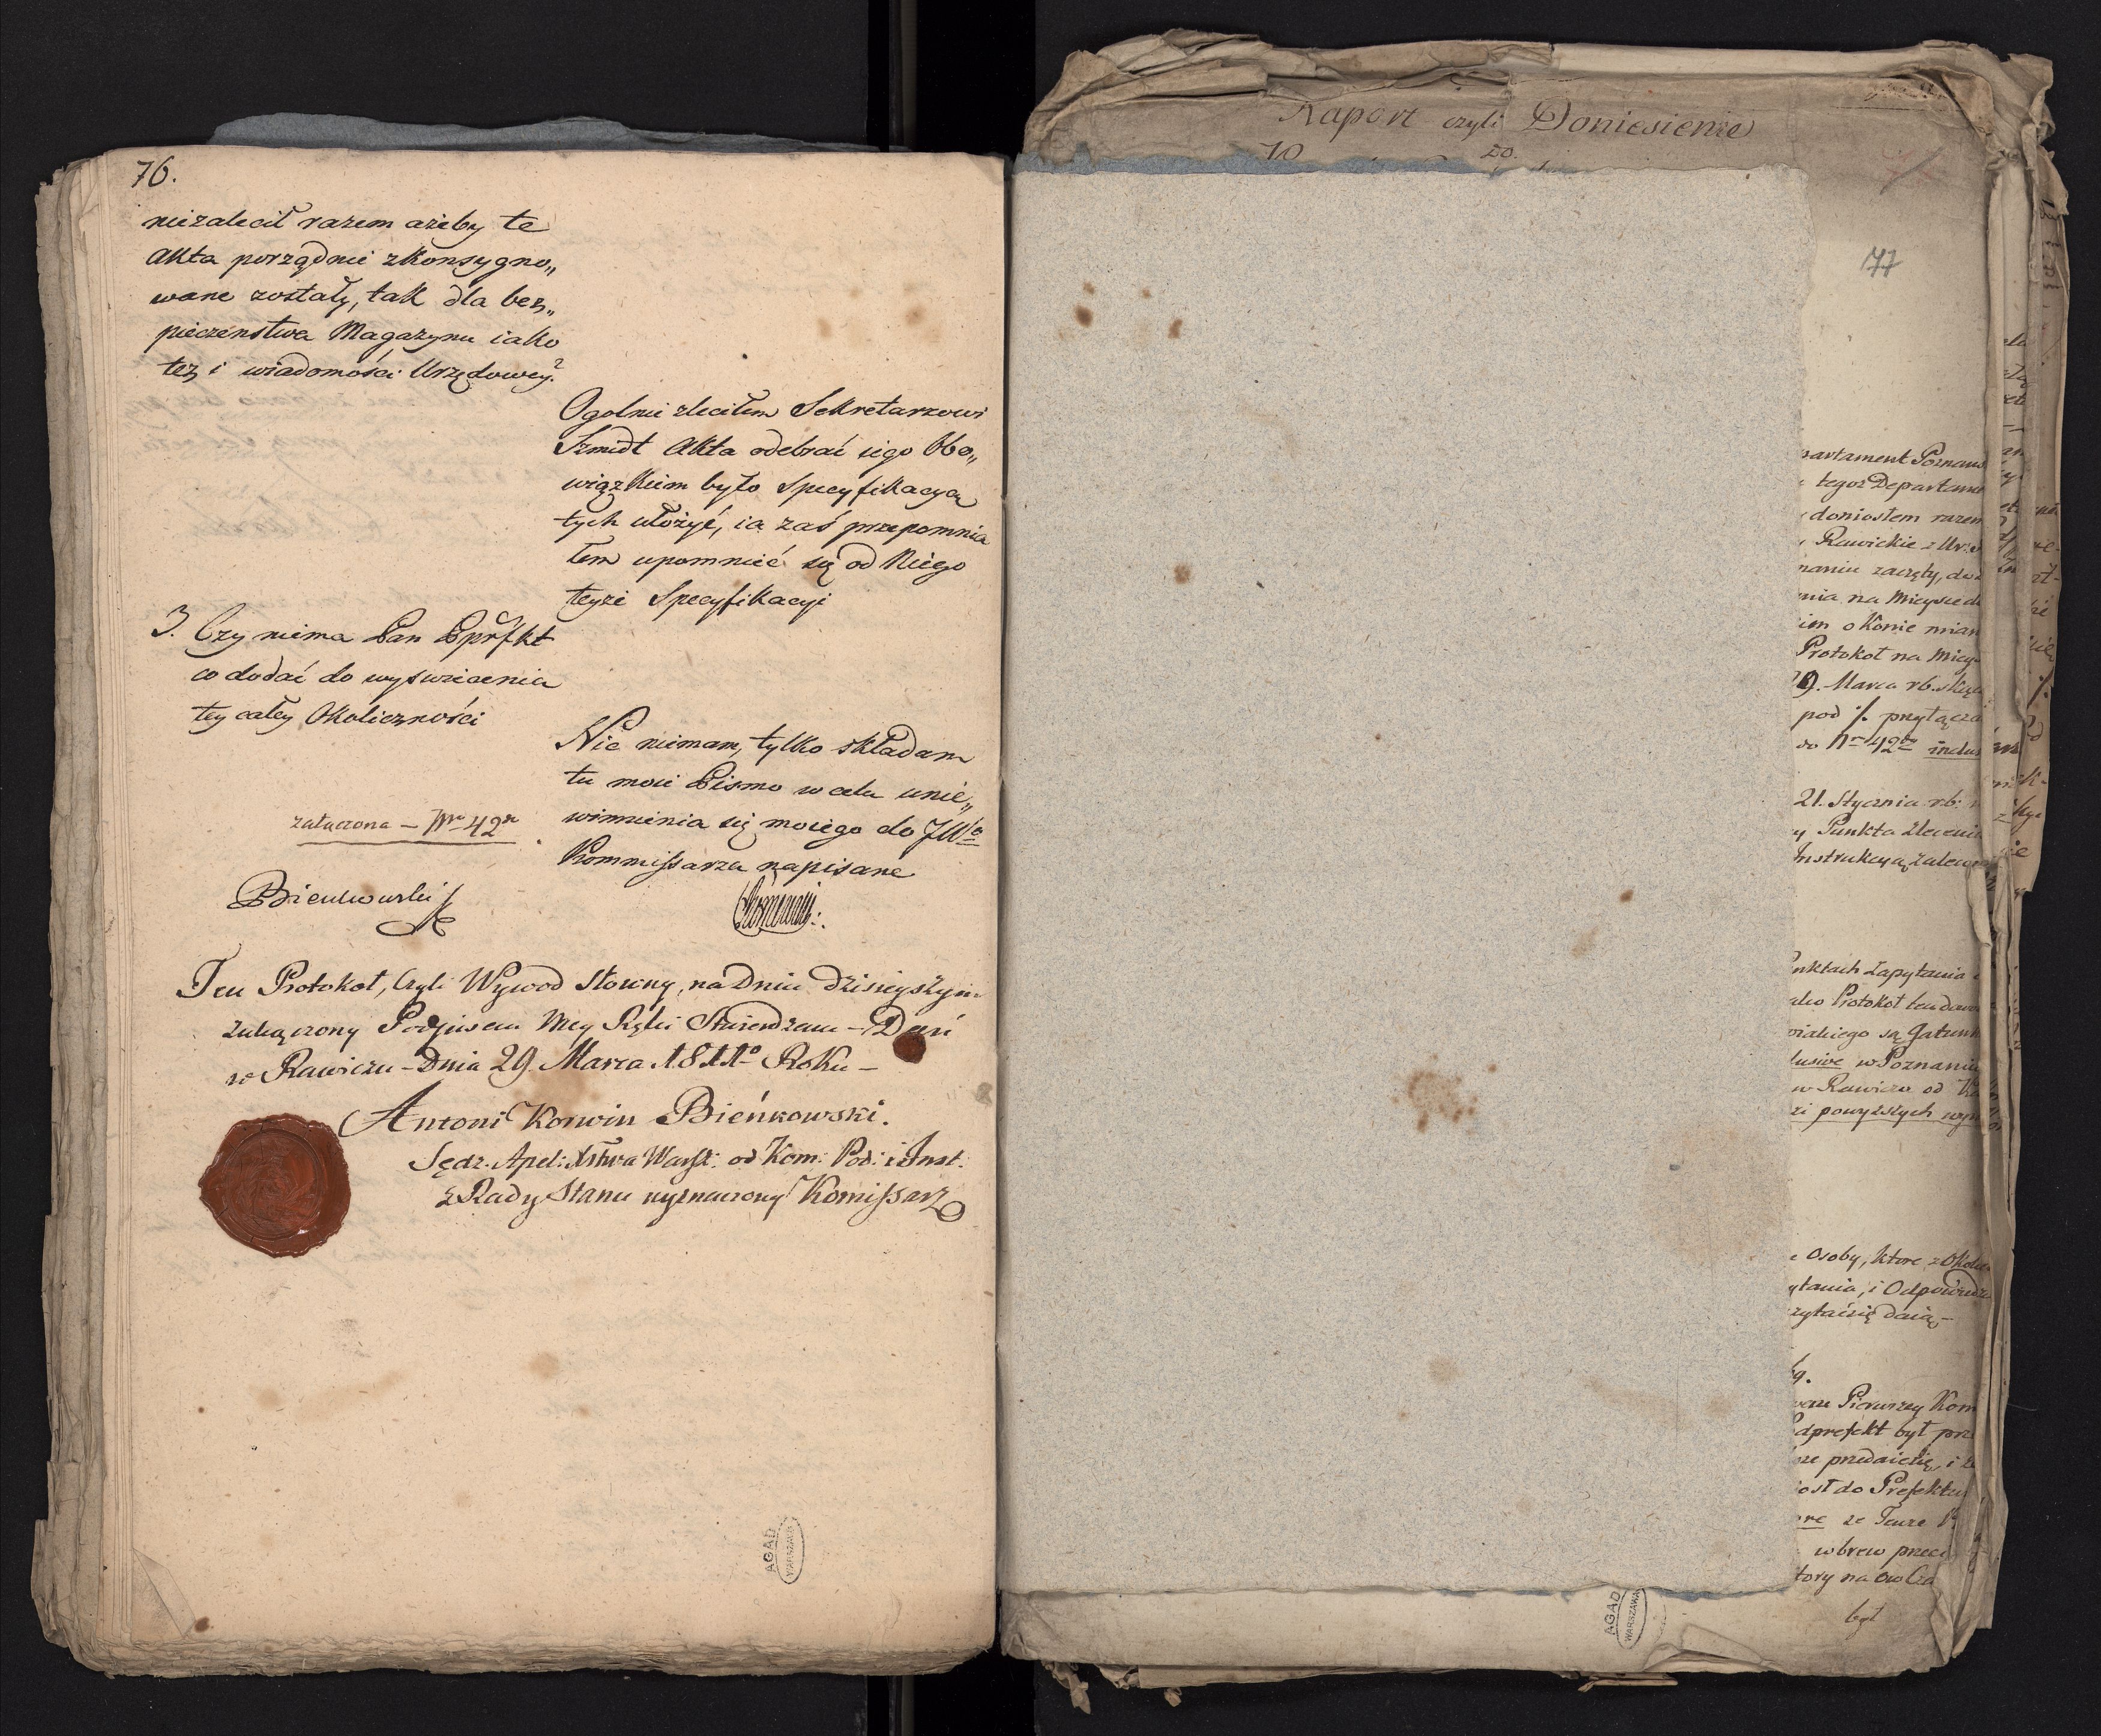 76.
niezalecił razem ażeby te
Akta porządnie zkonsygno„
wane zostały, tak dla bez„
pieczenstwa Magazynu iako
też i wiadomości Urzędowey?
Ogolnie zleciłem Sekretarzowi
Szmidt Akta odebrać iego Obo„
wiązkiem było Specyfikacyą
tych ułożyć, ia zaś przepomnia
łem upomnieć się od Niego
teyże Specyfikacyi
3. Czy niema Pan Pprfkt
co dodać do wyswiecenia
tey całey Okoliczności
Nic niemam, tylko składam
tu moie Pismo w celu unie„
winnienia się moiego do JW°
Kommissarza napisane
załączona – Nro 42
Bienkowski
Ten Protokoł, Czyli Wywod Słowny, na Dniu dzisieyszym
zakączony Podpisem Mey Ręki Stwierdzam – Dań
w Rawiczu – Dnia 29. Marca 1811° Roku –
Antoni Korwin Bieńkowski.
Sędz. Apel: Xstwa Warsz: od Kom: Pod: i Inst:
z Rady Stanu wyznaczony Komissarz
AGAD
WARSZAWA
Raport czyli Doniesienie
do
77
partament Poznans
tegoż Departame
doniosłem razem
Rawickie z Urz
naniu zaczęty, do
nia na Mieysce
im o Konie mian
Protokoł na Miey
29. Marca rb.
pod ./. przyłącza
do Nro 42 inclus
21. Stycznia rb:
Punkta Zleceni
Instrukcyą zalec
nktach Zapytania
ako Protokoł ten
iakiego są Gatunk
lusive w Poznaniu
w Rawiczu od
zi powyższych wym
Osoby, które z Okol
ytania, i Odpowiedz
czytać się daią –
Pierwszy Kom
dprefekt był prz
że przedaie się, i
iosł do Prefektu
re ze Tenże
wbrew przec
tory na
był
AGAD
WARSZAWA